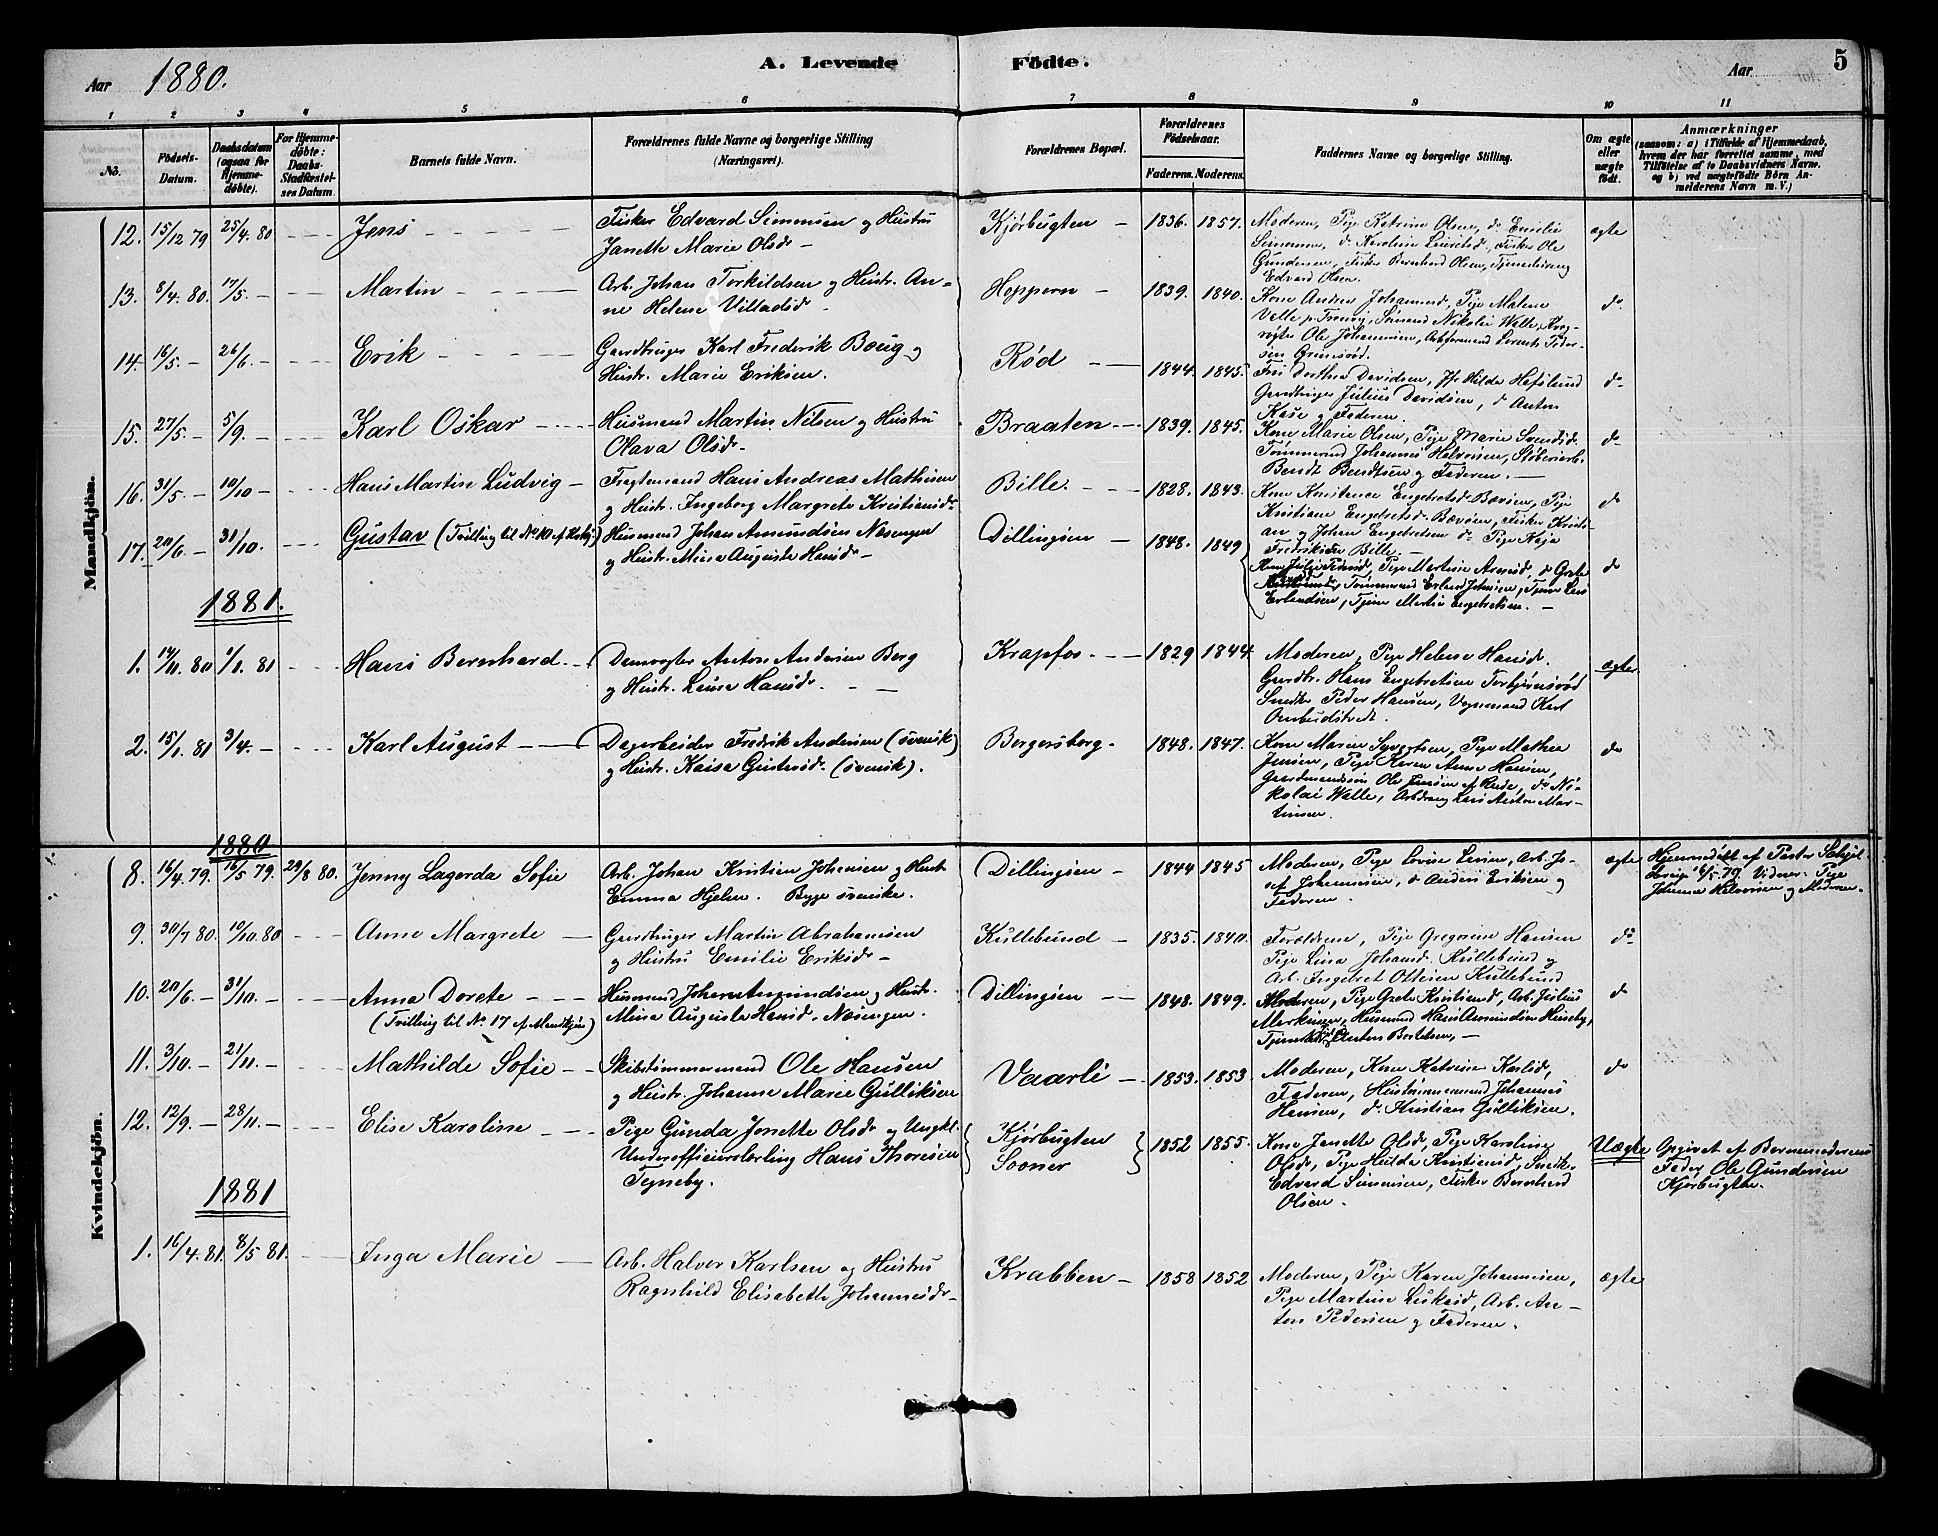 Aar 1880. A. Levende Födte. Aar 5
1 2 3 4 5 6 7 8 9 10 11
No. Födsels-Datum. Daabsdatum (ogsaa for Hjemmedöbte). For Hjemmedöbte: Daabs-Stadfæstelses Datum. Barnets fulde Navn. Forældrenes fulde Navne og borgerlige Stilling (Næringsvei). Forældrenes Bopæl. Forældrenes Födselsaar. Faderens. Moderens. Faddernes Navne og borgerlige Stilling. Om ægte eller uægte født. Anmærkninger (saasom: a) i Tilfælde af Hjemmedaab, hvem der har forrettet samme, med Tilföielse af to Daabsvidners Navne. og b) ved uægtefödte Börn Anmelderens Navn m. V.)
Mandkjön.
12. 15/12 79 25/4. 80 Jens Fisker Edvard Simensen og Hustru
Janette Marie Olsdr Kjørbugten 1836. 1857. Moderen, Pige Katrine Olsen, do Emilie
Simensen, do Karoline Lauritsd, Fisker Ole
Gundersen, Fisker Bernhard Olsen, Tjenestedreng
Edvard Olsen. ægte
13. 8/4. 80. 17/5. Martin Arb. Johan Torkildsen og Hustr. An-
ne Helene Villadsd Hoppern 1839. 1840. Kone Andrea Johannesd, Pige Malene
Valle Sømand Nikolai Walle,
Ole Johannesen, Arbformand Lorents Peder-
sen Grimsrød. do
14. 16/5. 26/6. Erik Gaardbruger Karl Frederik Boug og
Hustr. Marie Eriksen. Rød 1844. 1845. Fru Dorthea Davidsen, Jfr Hilda Hafslund
Gaardbruger Julius Davidsen, do Anton
Kase og Faderen. do
15. 27/5. 5/9. Karl Oskar Husmand Martin Nilsen og Hustru
Olava Olsdr. Braaten 1839. 1845. Kone Marie Olsen, Pige Marie Svendsd.
Tømmermd Johannes Halvorsen, Støberiarb.
Bendt Bendtsen og Faderen. do
16. 31/5. 10/10 Hans Martin Ludvig Fragtemand Hans Andreas Mathisen
og Hustr. Ingeborg Margrete Kristiansdr Bille. 1828. 1843. Kone Konstance Engebretsd Bævøen, Pige
Kristiane Engebretsd Bævøen, Fisker Kristi-
an og Johan Engebretsen do Pige Kaja
Fredriksen Bille. do
17. 20/6. 31/10. Gustav (Tvilling til No 10 af Kvkj.) Husmand Johan Amundsen Næsengen
og Hustr. Mina Augusta Hansdr Dillingøen 1848. 1849 Pige Martine do Grete
Tømmermd Erland Johnsen, Tjener Lars
Erlandsen, Tjener Martin Engebretsen. do
1881.
1. 14/11. 80 1/1. 81 Hans Bernhard Damvogter Anton Andersen Berg
og Hustr. Laura Hansdr. Krapfos 1829 1844 Moderen, Pige Helene Hansd.
Gaardbr. Hans Engebretsen Torbjørnsrød
Smedkr Peder Hansen, Vognmand Karl
Ombudstvedt. ægte
2. 15/1. 81 3/4. Karl August Dagarbeider Fredrik Andersen (svensk)
og Hustr. Kaisa Gustavsdr. (svensk). Bergersborg 1848. 1847. Kone Maren Syvertsen, Pige Mathea
Jensen, Pige Karen Anna Hansen,
Gaardmandssøn Ole Jensen af Rude, do Ni-
kolai Walle, Arbdreng Lars Anton Mar-
tinsen. do
Kvindekjön.
1880
8. 16/4. 79. 16/5 79. 29/8 80. Jenny Lagerda Sofie Arb. Johan Kristian Johansen og Hustr
Emma Hjelm. Begge svenske. Dillingøen 1844 1845 Moderen, Pige Lovise Larsen, Arb. Jo-
sef Johannesen, do Anders Eriksen og
Faderen. ægte Hjemmedøbt af Pastor Schjel-
derup 16/5 79. Vidner: Pige
Johanne Halvorsen og Moderen.
9. 30/7 80. 10/10 80 Anne Margrete Gaardbruger Martin Abrahamsen
og Hustru Emilie Eriksdr Kullebund 1835. 1840. Forældrene, Pige Gregorine Hansen
Pige Lina Johansd. Kullebund og
Arb. Ingebret Ottesen Kullebund do
10. 20/6. 31/10. Anna Dorete
(Tvilling til No. 17 af Mandkjøn) Husmand Johan Amundsen og Hustr.
Mina Augusta Hansd. Næsengen. Dillingøen 1848. 1849. Moderen, Pige Grete Kristiansd, Arb. Julius
Markussen, Husmand Hans Amundsen Huseby,
Tjener Anton Bertelsen, do
11. 3/10. 21/11. Mathilde Sofie Skibstømmermand Ole Hansen
og Hustr. Johanne Marie Gulliksen Vaarli 1853. 1853 Moderen, Kone Katrine Karlsd,
Faderen, Hustømmermand Johannes
Hansen, do Kristian Gulliksen. do
12. 12/9. 28/11. Elise Karoline Pige Gunda Jonette Olsdr og Ungkl.
Underofficierslærling Hans Thoresen
Tejneby. Kjørbugten
Sooner 1852 1855 Kone Janette Olsd, Pige Karoline
Olsd, Pige Hulda Kristiansd, Smedkr
Edvard Simensen, Fisker Bernhard
Olsen. Uægte Opgivet af Barnemoderens
Fader Ole Gundersen
Kjørbugten.
1881
1. 16/4. 81. 8/5 81. Inga Marie Arb. Halvor Karlsen og Hustru
Ragnhild Elisabeth Johannesdr Krabben 1858 1852 Moderen, Pige Karen Johannesen,
Pige Martine Lukasd, Arb. An-
ton Pedersen og Faderen. ægte